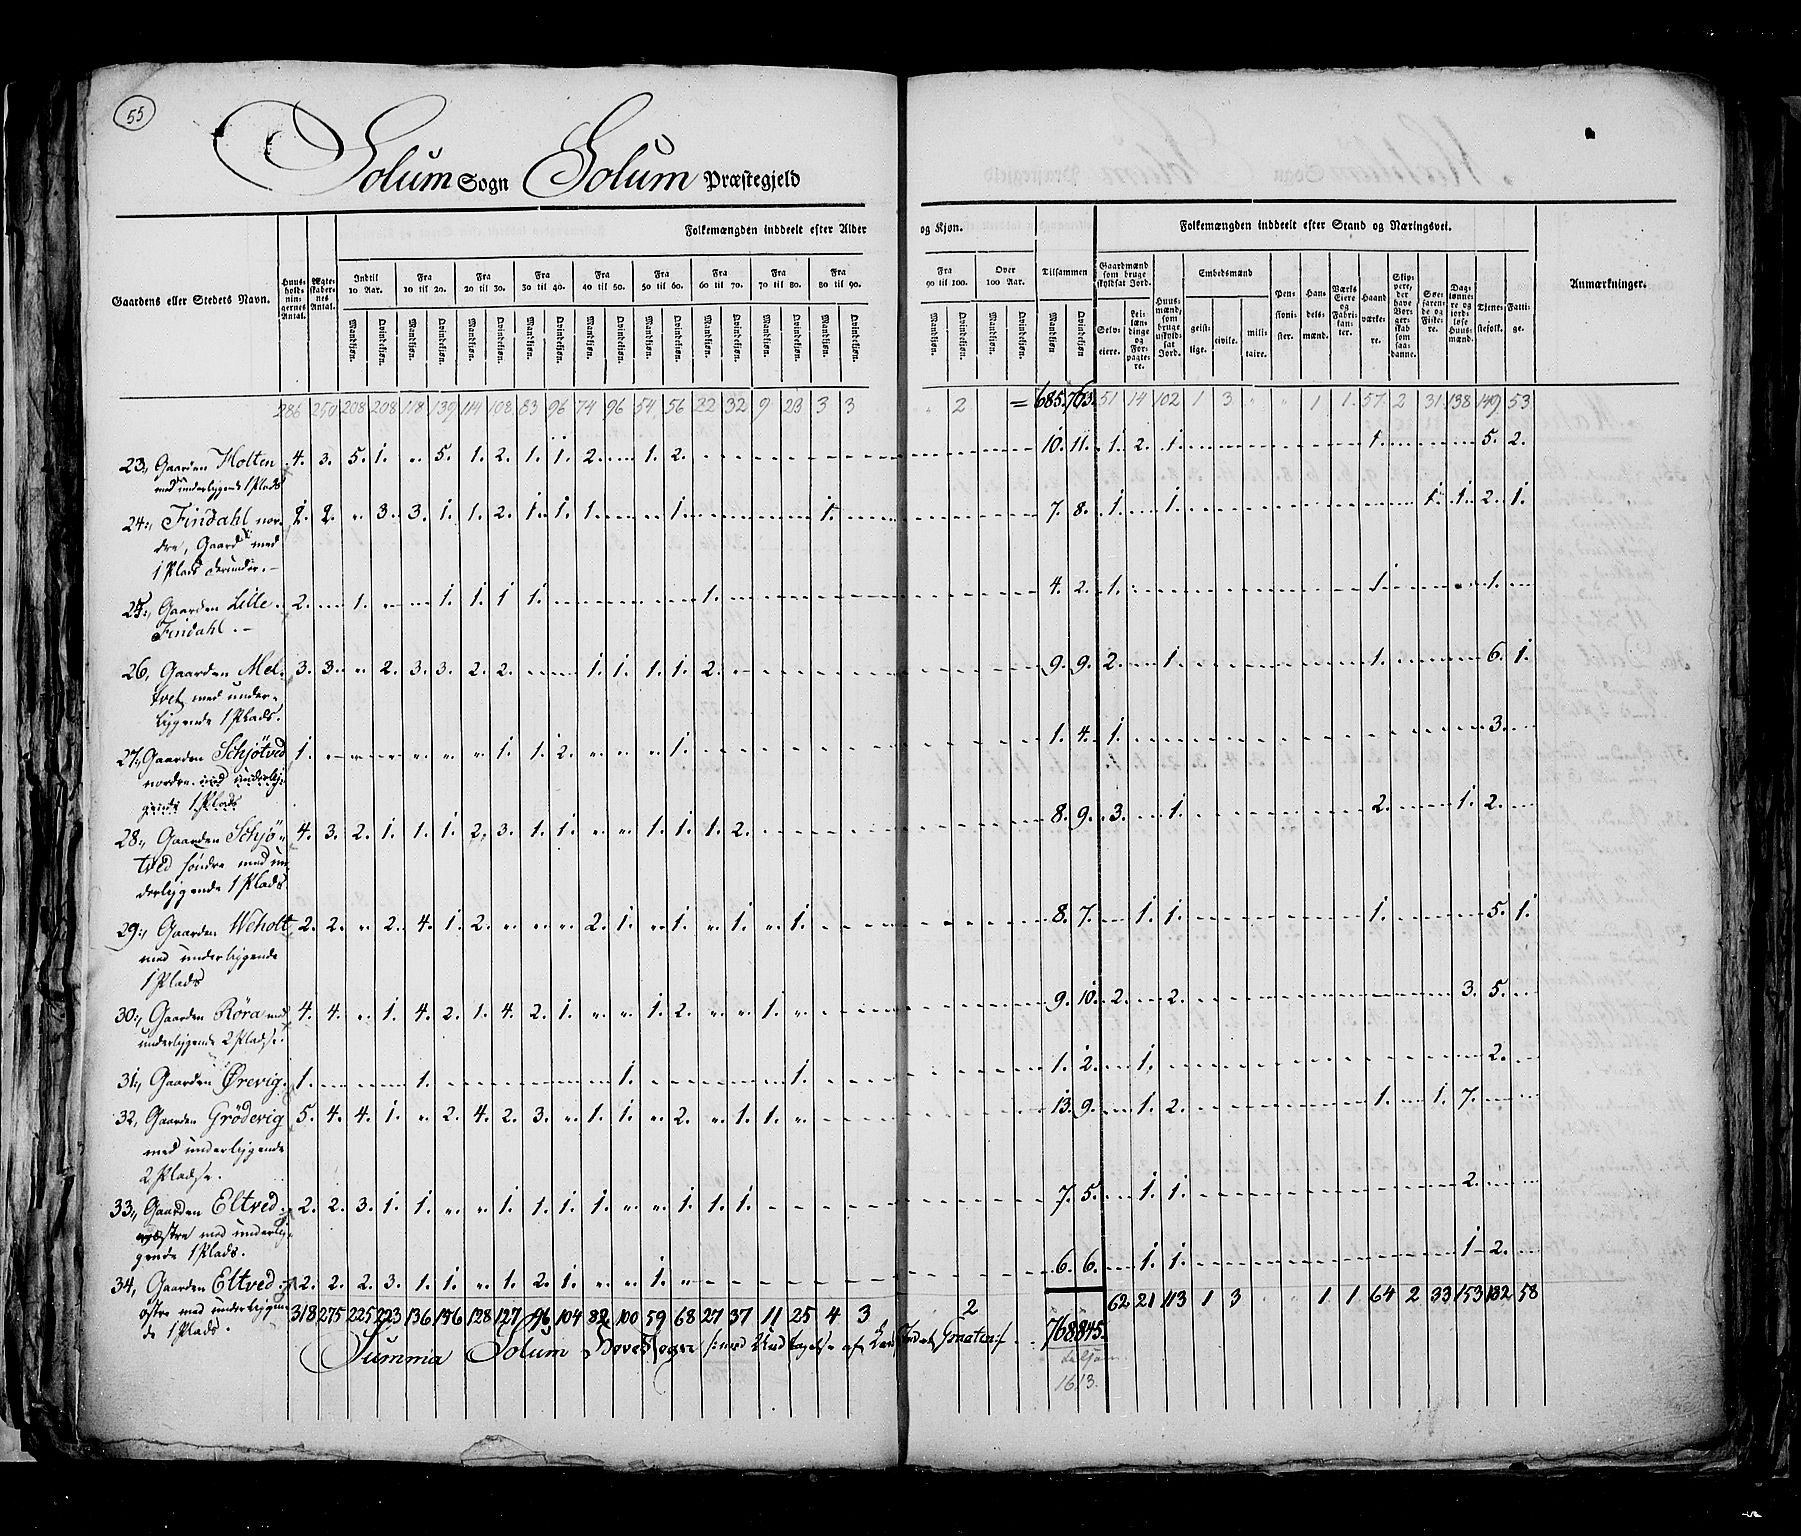 55
Solum Sogn Solum Præstegjeld
Folkemængden inddeelt efter Alder og Kjøn. Folkemængden inddeelt efter Stand og Næringsvei.
Gaardens eller Stedets Navn. Huusholdningernes Antal. Ægteskabernes Antal. Indtil 10 Aar. Fra 10 til 20. Fra 20 til 30. Fra 30 til 40. Fra 40 til 50. Fra 50 til 60. Fra 60 til 70. Fra 70 til 80. Fra 80 til 90. Fra 90 til 100. Over 100 Aar. Tilsammen Gaardmænd som bruge skyldsat Jord. Huusmænd, som bruge uskyldsat Jord. Embedsmænd Pensionister. Handelsmænd. Værks Eiere og Fabrikanter. Haandværkere. Skippere, der have Borgerskab som saadanne. Søefarende og Fiskere. Daglønnere og jordløse Huusmænd. Tjenestefolk. Fattige. Anmærkninger.
Mandkjøn. Qvindekjøn. Mandkjøn. Qvindekjøn. Mandkjøn. Qvindekjøn. Mandkjøn. Qvindekjøn. Mandkjøn. Qvindekjøn. Mandkjøn. Qvindekjøn. Mandkjøn. Qvindekjøn. Mandkjøn. Qvindekjøn. Mandkjøn. Qvindekjøn. Mandkjøn. Qvindekjøn. Mandkjøn. Qvindekjøn. Mandkjøn. Qvindekjøn. Selveiere. Leilændinge og Forpagtere. geistlige. civile. militaire.
286 250 208 208 118 139 114 108 83 96 74 96 54 56 22 32 9 23 3 3 2 = 685. 763. 51 14 102 1 3 1 1. 57 2 31 138 149 53
23., Gaarden Holten 4. 3. 5. 1. " 5. 1. 2. 1. 1. 2. 1. 2. 10. 11. 1. 2. 1. 1. 5. 2.
med underliggende 1 Plads
24., Findahl nor- 2. 2. " 3. 3. 1. 1. 2. 1. 1. 1. 1. 1. 7. 8. 1. 1. 1. 1. 2. 1.
dre, Gaard med
1 Plads derunder. —
25., Gaarden Lille 2. 1. 1. 1. 1 1. 1. 4. 2. 1. 1. 1.
Findahl. —
26, Gaarden Mel- 3. 3. " 2. 3. 3. 2. 2. 1. 1. 1. 1. 2. 9. 9. 2. 1. 1. 6. 1.
tvet med under-
liggende 1 Plads.
27., Gaarden Schjøtved 1. 1. 1. 2. 1. 1. 4. 1. 3.
nordre med underlig-
gende 1 Plads
28., Gaarden Schjø- 4. 3. 2. 1. 1. 1. 2. 3. 1. 1. " " 1. 1. 1. 2. 8. 9. 3. 1. 2. 1. 2.
tved søndre med un-
derliggende 1 Plads.
29., Gaarden Weholt 2. 2. " 2. 4. 1. 2. " " " 2. 1. " 1. " 1. " 1. 8. 7. 1. 1. 1. 5. 1.
med underliggende
1 Plads
30., Gaarden Röra med 4. 4. " 1. 4. 2. 1. 4. 2. 1. " " 1. 2. " " 1. " 9. 10. 2. 2. 3. 5.
underliggende 2 Pladse.
31., Gaarden Ørevig. 1. 1. 1. 1. 1. 2. 1. 2.
32, Gaarden Grödevig 5. 4. 4. 1. " 2. 4. 2. 3. " 1. 1. " 2. " 1. 1. " 13. 9. 1. 2. 1. 1. 7.
med underliggende
2 Pladse.
33., Gaarden Eltved 2. 2. 3. 1. 1. " " 1. 1. 1. 1. " " 1. 1. 1. 7. 5. 1. 1. 2.
væstre med underlig-
gende 1 Plads.
34, Gaarden Eltved 2. 2. 2. 3. 1. 1. " 1. 2. 1. " " 1. " 6. 6. 1. 1. 1 2.
østre med underliggen-
de 1 Plads.
318 275 225 223 136 156 128 127 96 104 82 100 59 68 27 37 11 25 4 3 2 768. 845. 62 21 113 1 3 1 1 64 2 33 153 182 58
Summa Solum Hovedsogn
tilsam.
1613.